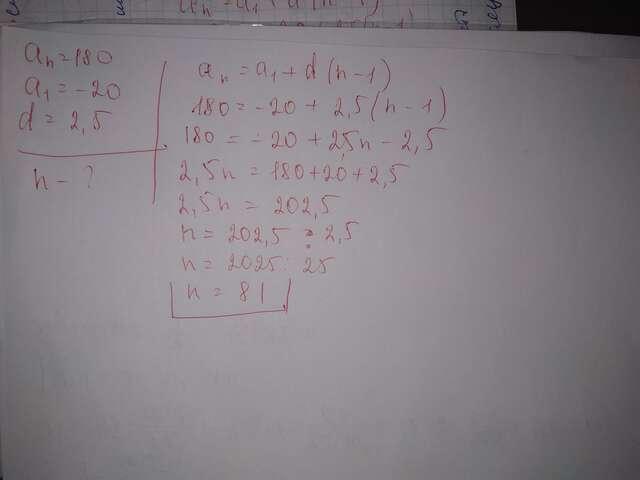 aₙ = 180
a₁ = -20
d = 2,5
n - ?
aₙ = a₁ + d (n - 1)
180 = -20 + 2,5 (n - 1)
180 = -20 + 2,5n - 2,5
2,5n = 180 + 20 + 2,5
2,5n = 202,5
n = 202,5 : 2,5
n = 2025 : 25
n = 81